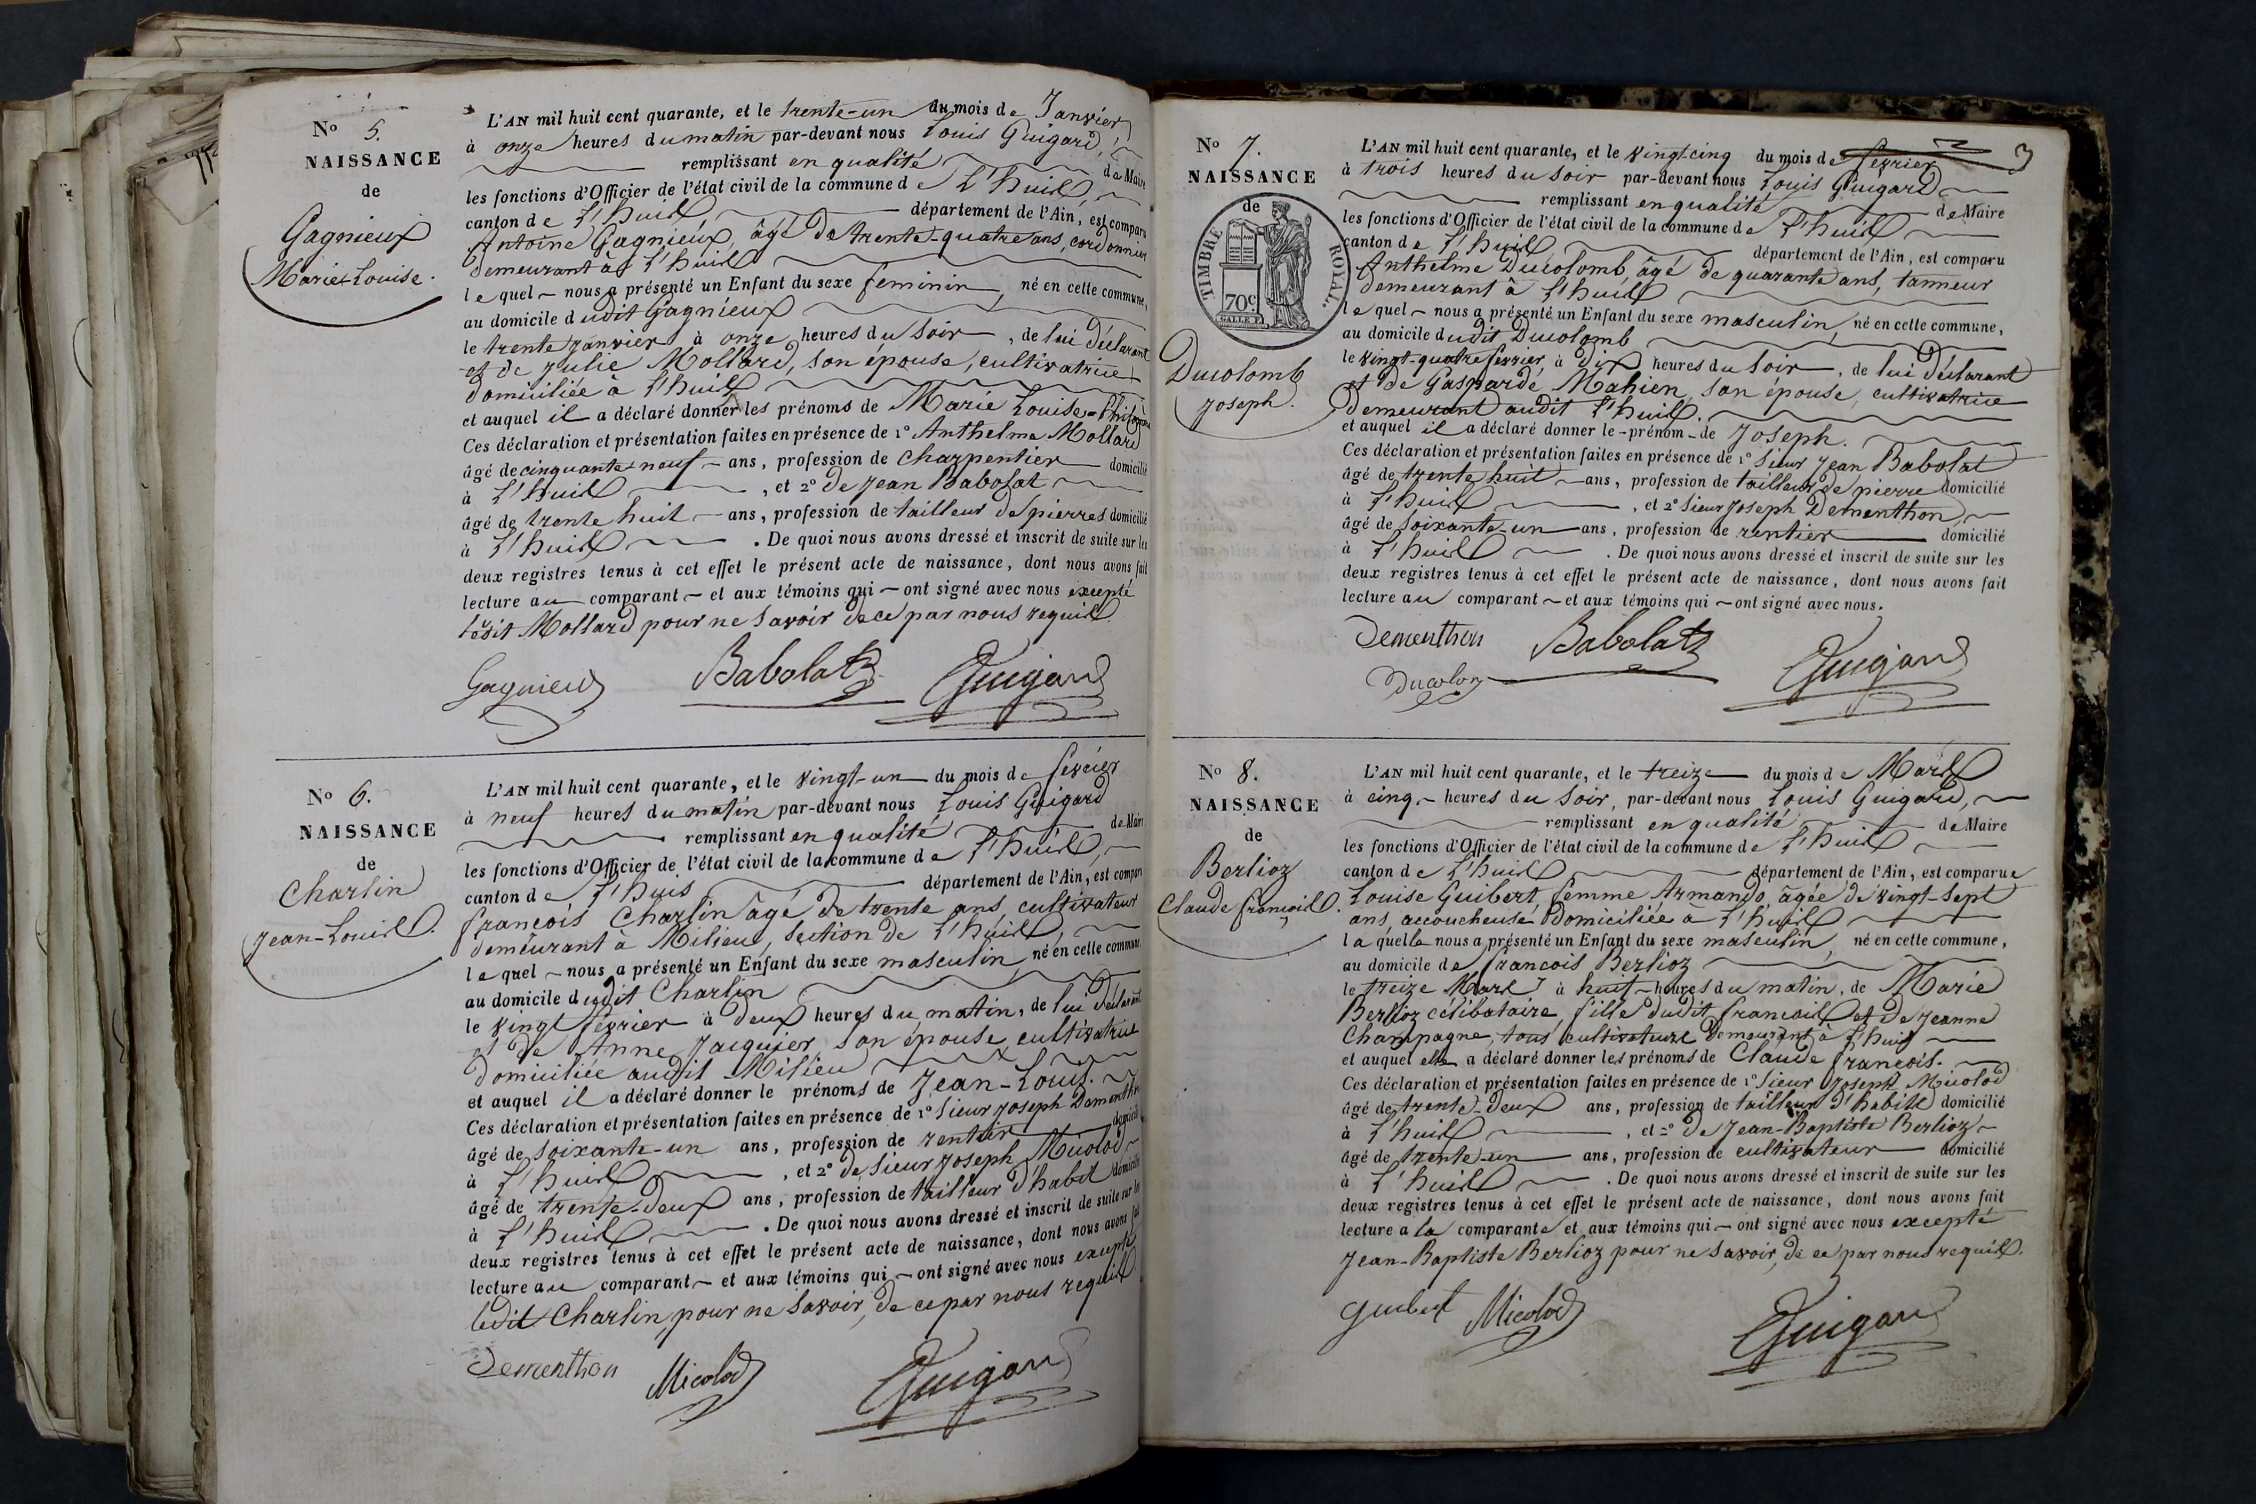 No 5.
NAISSANCE
de
Gagnieux
Marie-Louise.
L'AN mil huit cent quarante, et le trente-un du mois de Janvier
à onze heures du matin par-devant nous Louis Guigard,
remplissant en qualité de Maire
les fonctions d'Officier de l'état civil de la commune de L'huis,
canton de L'huis département de l'Ain, est comparu
Antoine Gagnieux, âgé de trente-quatre ans, cordonnier
demeurant à L'huis
lequel nous a présenté un Enfant du sexe feminin, né en cette commune,
au domicile dudit Gagnieux
le trente janvier à onze heures du soir, de lui déclarant
et de Julie Mollard, son épouse, cultivatrice
domiciliée à L'huis
et auquel il a déclaré donner les prénoms de Marie Louise-
Ces déclaration et présentation faites en présence de 1o Anthelme Mollard
âgé de cinquante-neuf ans, profession de charpentier domicilié
à L'huis, et 2o de Jean Babolat
âgé de trente huit ans, profession de tailleur de pierres domicilié
à L'huis. De quoi nous avons dressé et inscrit de suite sur les
deux registres tenus à cet effet le présent acte de naissance, dont nous avons fait
lecture au comparant et aux témoins qui ont signé avec nous excepté
ledit Mollard pour ne savoir de ce par nous requis.
Gagnieux Babolat Guigard
No 6.
NAISSANCE
de
Charlin
Jean-Louis.
L'AN mil huit cent quarante, et le vingt-un du mois de février
à neuf heures du matin par-devant nous Louis Guigard
remplissant en qualité de Maire
les fonctions d'Officier de l'état civil de la commune de L'huis,
canton de L'huis département de l'Ain, est comparu
françois Charlin âgé de trente ans, cultivateur
demeurant à Milieu, section de L'huis,
lequel nous a présenté un Enfant du sexe masculin, né en cette commune
au domicile dudit Charlin
le vingt février à deux heures du matin, de lui déclarant
et de Anne Jacquier son épouse, cultivatrice
domiciliée audit Milieu
et auquel il a déclaré donner le prénoms de Jean-Louis.
Ces déclaration et présentation faites en présence de 1o Sieur Joseph Dementhon
âgé de soixante-un ans, profession de rentier domicilié
à L'huis, et 2o de Sieur Joseph Micolod
âgé de trente-deux ans, profession de tailleur d'habit domicilié
à L'huis. De quoi nous avons dressé et inscrit de suite sur les
deux registres tenus à cet effet le présent acte de naissance, dont nous avons fait
lecture au comparant et aux témoins qui ont signé avec nous excepté
ledit Charlin, pour ne savoir, de ce par nous requis.
Dementhon Micolod Guigard
3
No 7.
NAISSANCE
de
TIMBRE ROYAL.
70c
Ducolomb
Joseph.
L'AN mil huit cent quarante, et le vingt-cinq du mois de février
à trois heures du soir par-devant nous Louis Guigard
remplissant en qualité de Maire
les fonctions d'Officier de l'état civil de la commune de L'huis
canton de L'huis département de l'Ain, est comparu
Anthelme Ducolomb, âgé de quarante ans, tanneur
demeurant à L'huis
lequel nous a présenté un Enfant du sexe masculin, né en cette commune,
au domicile dudit Ducolomb
le vingt-quatre février à dix heures du soir, de lui déclarant
et de Gasparde Mahien, son épouse, cultivatrice
demeurant audit L'huis.
et auquel il a déclaré donner le prénom de Joseph.
Ces déclaration et présentation faites en présence de 1o Sieur Jean Babolat
âgé de trente huit ans, profession de tailleur de pierre domicilié
à L'huis, et 2o Sieur Joseph Dementhon,
âgé de soixante-un ans, profession de rentier domicilié
à L'huis. De quoi nous avons dressé et inscrit de suite sur les
deux registres tenus à cet effet le présent acte de naissance, dont nous avons fait
lecture au comparant et aux témoins qui ont signé avec nous.
Dementhon Babolat Guigard
Ducolom
No 8.
NAISSANCE
de
Berlioz
Claude françois.
L'AN mil huit cent quarante, et le treize du mois de Mars
à cinq heures du soir, par-devant nous Louis Guigard,
remplissant en qualité de Maire
les fonctions d'Officier de l'état civil de la commune de L'huis
canton de L'huis département de l'Ain, est comparue
Louise Guibert, femme Armando, âgée de vingt-sept
ans, accoucheuse domiciliée à L'huis
laquelle nous a présenté un Enfant du sexe masculin, né en cette commune,
au domicile de françois Berlioz
le treize Mars à huit heures du matin, de Marie
Berlioz célibataire, fille dudit françois et de Jeanne
Champagne, tous cultivateurs demeurant à L'huis
et auquel elle a déclaré donner les prénoms de Claude françois.
Ces déclaration et présentation faites en présence de 1o Sieur Joseph Micolod
âgé de trente-deux ans, profession de tailleur d'habits domicilié
à L'huis, et 2o de Jean-Baptiste Berlioz
âgé de trente-un ans, profession de cultivateur domicilié
à L'huis. De quoi nous avons dressé et inscrit de suite sur les
deux registres tenus à cet effet le présent acte de naissance, dont nous avons fait
lecture a la comparante et aux témoins qui ont signé avec nous excepté
Jean-Baptiste Berlioz pour ne savoir, de ce par nous requis.
Guibert Micolod Guigard